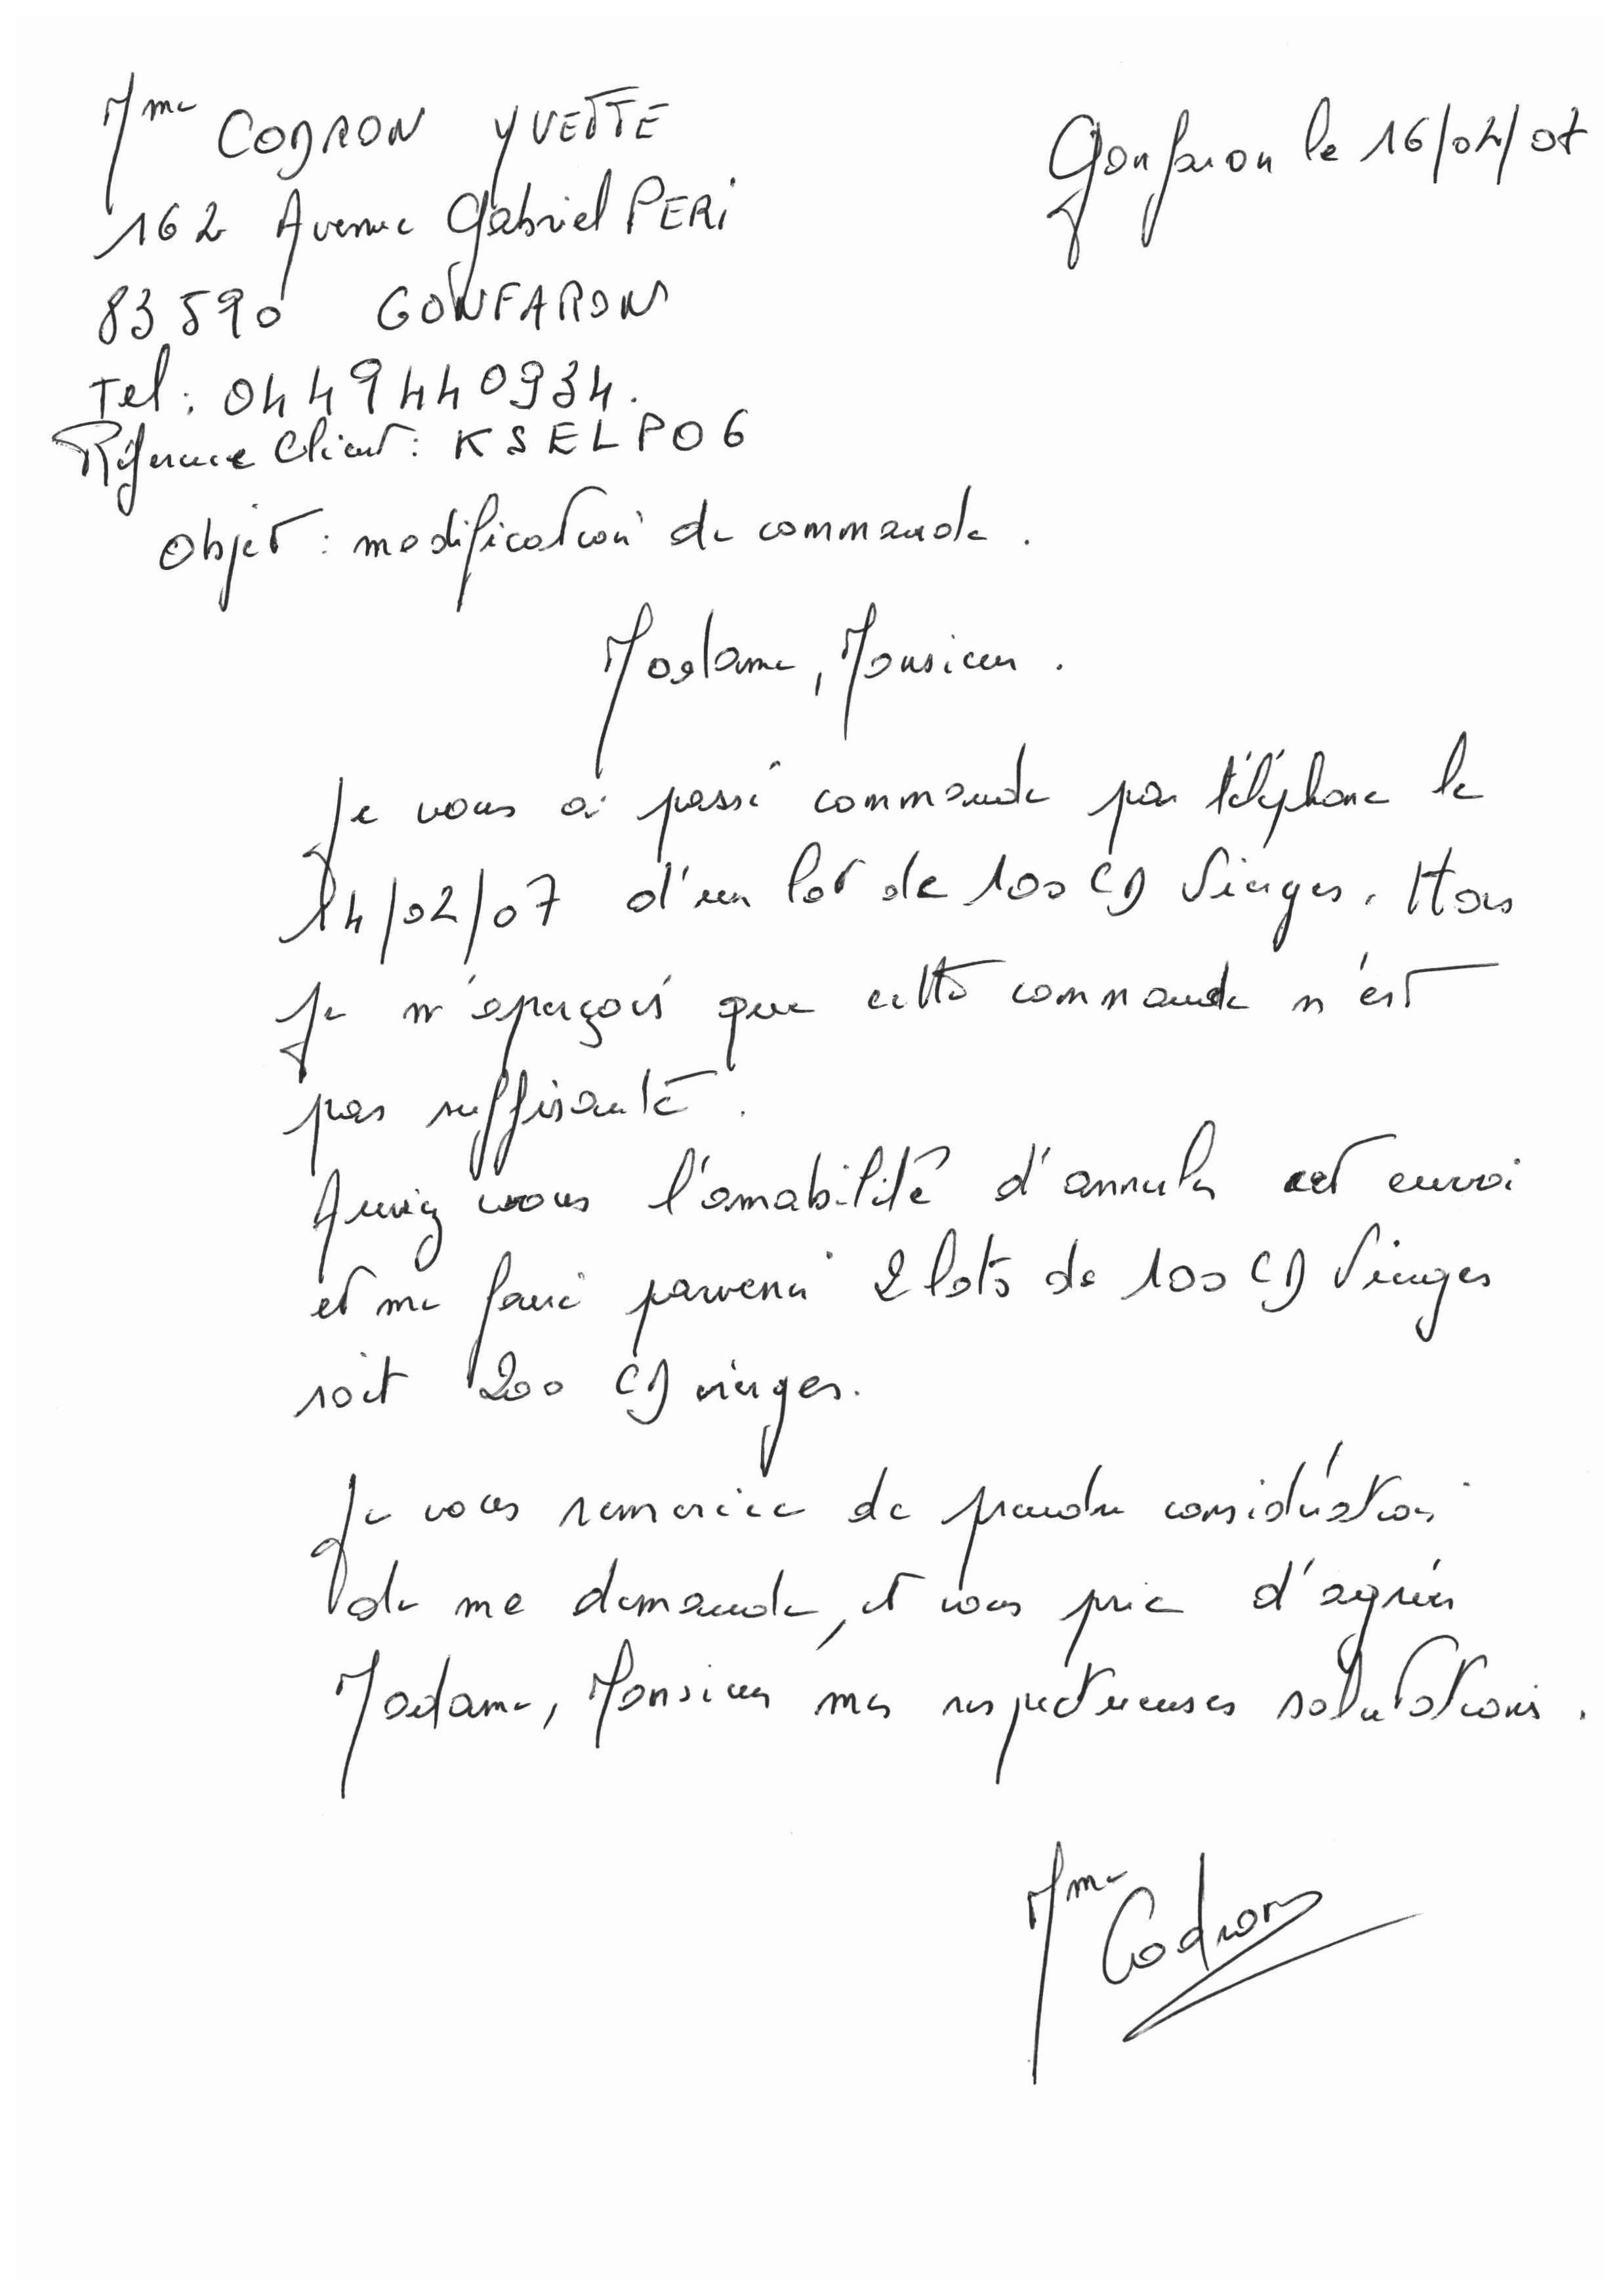 Mme CODRON YVETTE
Gonfaron le 16/02/07
162 Avenue Gabriel PERI
83590 GONFARON
Tel : 0449440934.
Référence Client : KSELPO6
Objet : modification de commande.
Madame, Monsieur.
Je vous ai passé commande par téléphone le
14/02/07 d'un lot de 100 CD Vierges. Mais
je m'aperçois que cette commande n'est
pas suffisante.
Auriez vous l'amabilité d'annuler cet envoi
et me faire parvenir 2 lots de 100 CD Vierges
soit 200 CD vierges.
Je vous remercie de prendre considération
de ma demande, et vous prie d'agréer
Madame, Monsieur mes respectueuses salutations.
Mme Codron